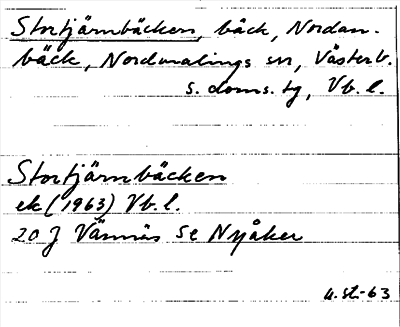 Stortjärnbäcken, bäck, Nordan-
bäck, Nordmalings sn, Västerb.
s. doms. tg, Vb. l.
Stortjärnbäcken
ek (1963) Vb. l.
20 J Vännäs SE Nyåker
u. st. -63